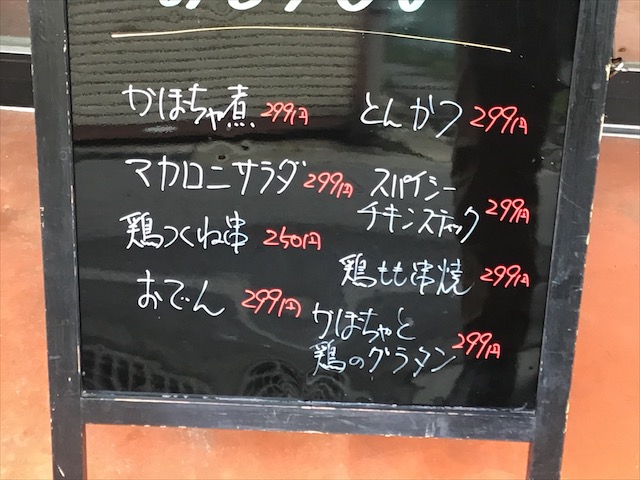 かぼちゃ煮 299円
マカロニサラダ 299円
鶏つくね串 250円
おでん 299円
とんかつ 299円
スパイシー
チキンスティック 299円
鶏もも串焼 299円
かぼちゃと
鶏のグラタン 299円